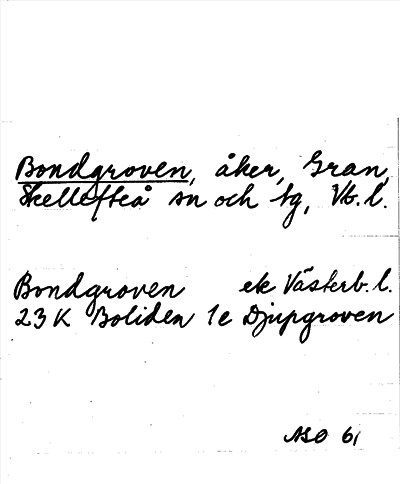 Bondgroven, åker, Gran,
Skellefteå sn och tg, Vb. l.
Bondgroven ek Västerb. l.
23 K Boliden 1e Djupgroven
ASO 61